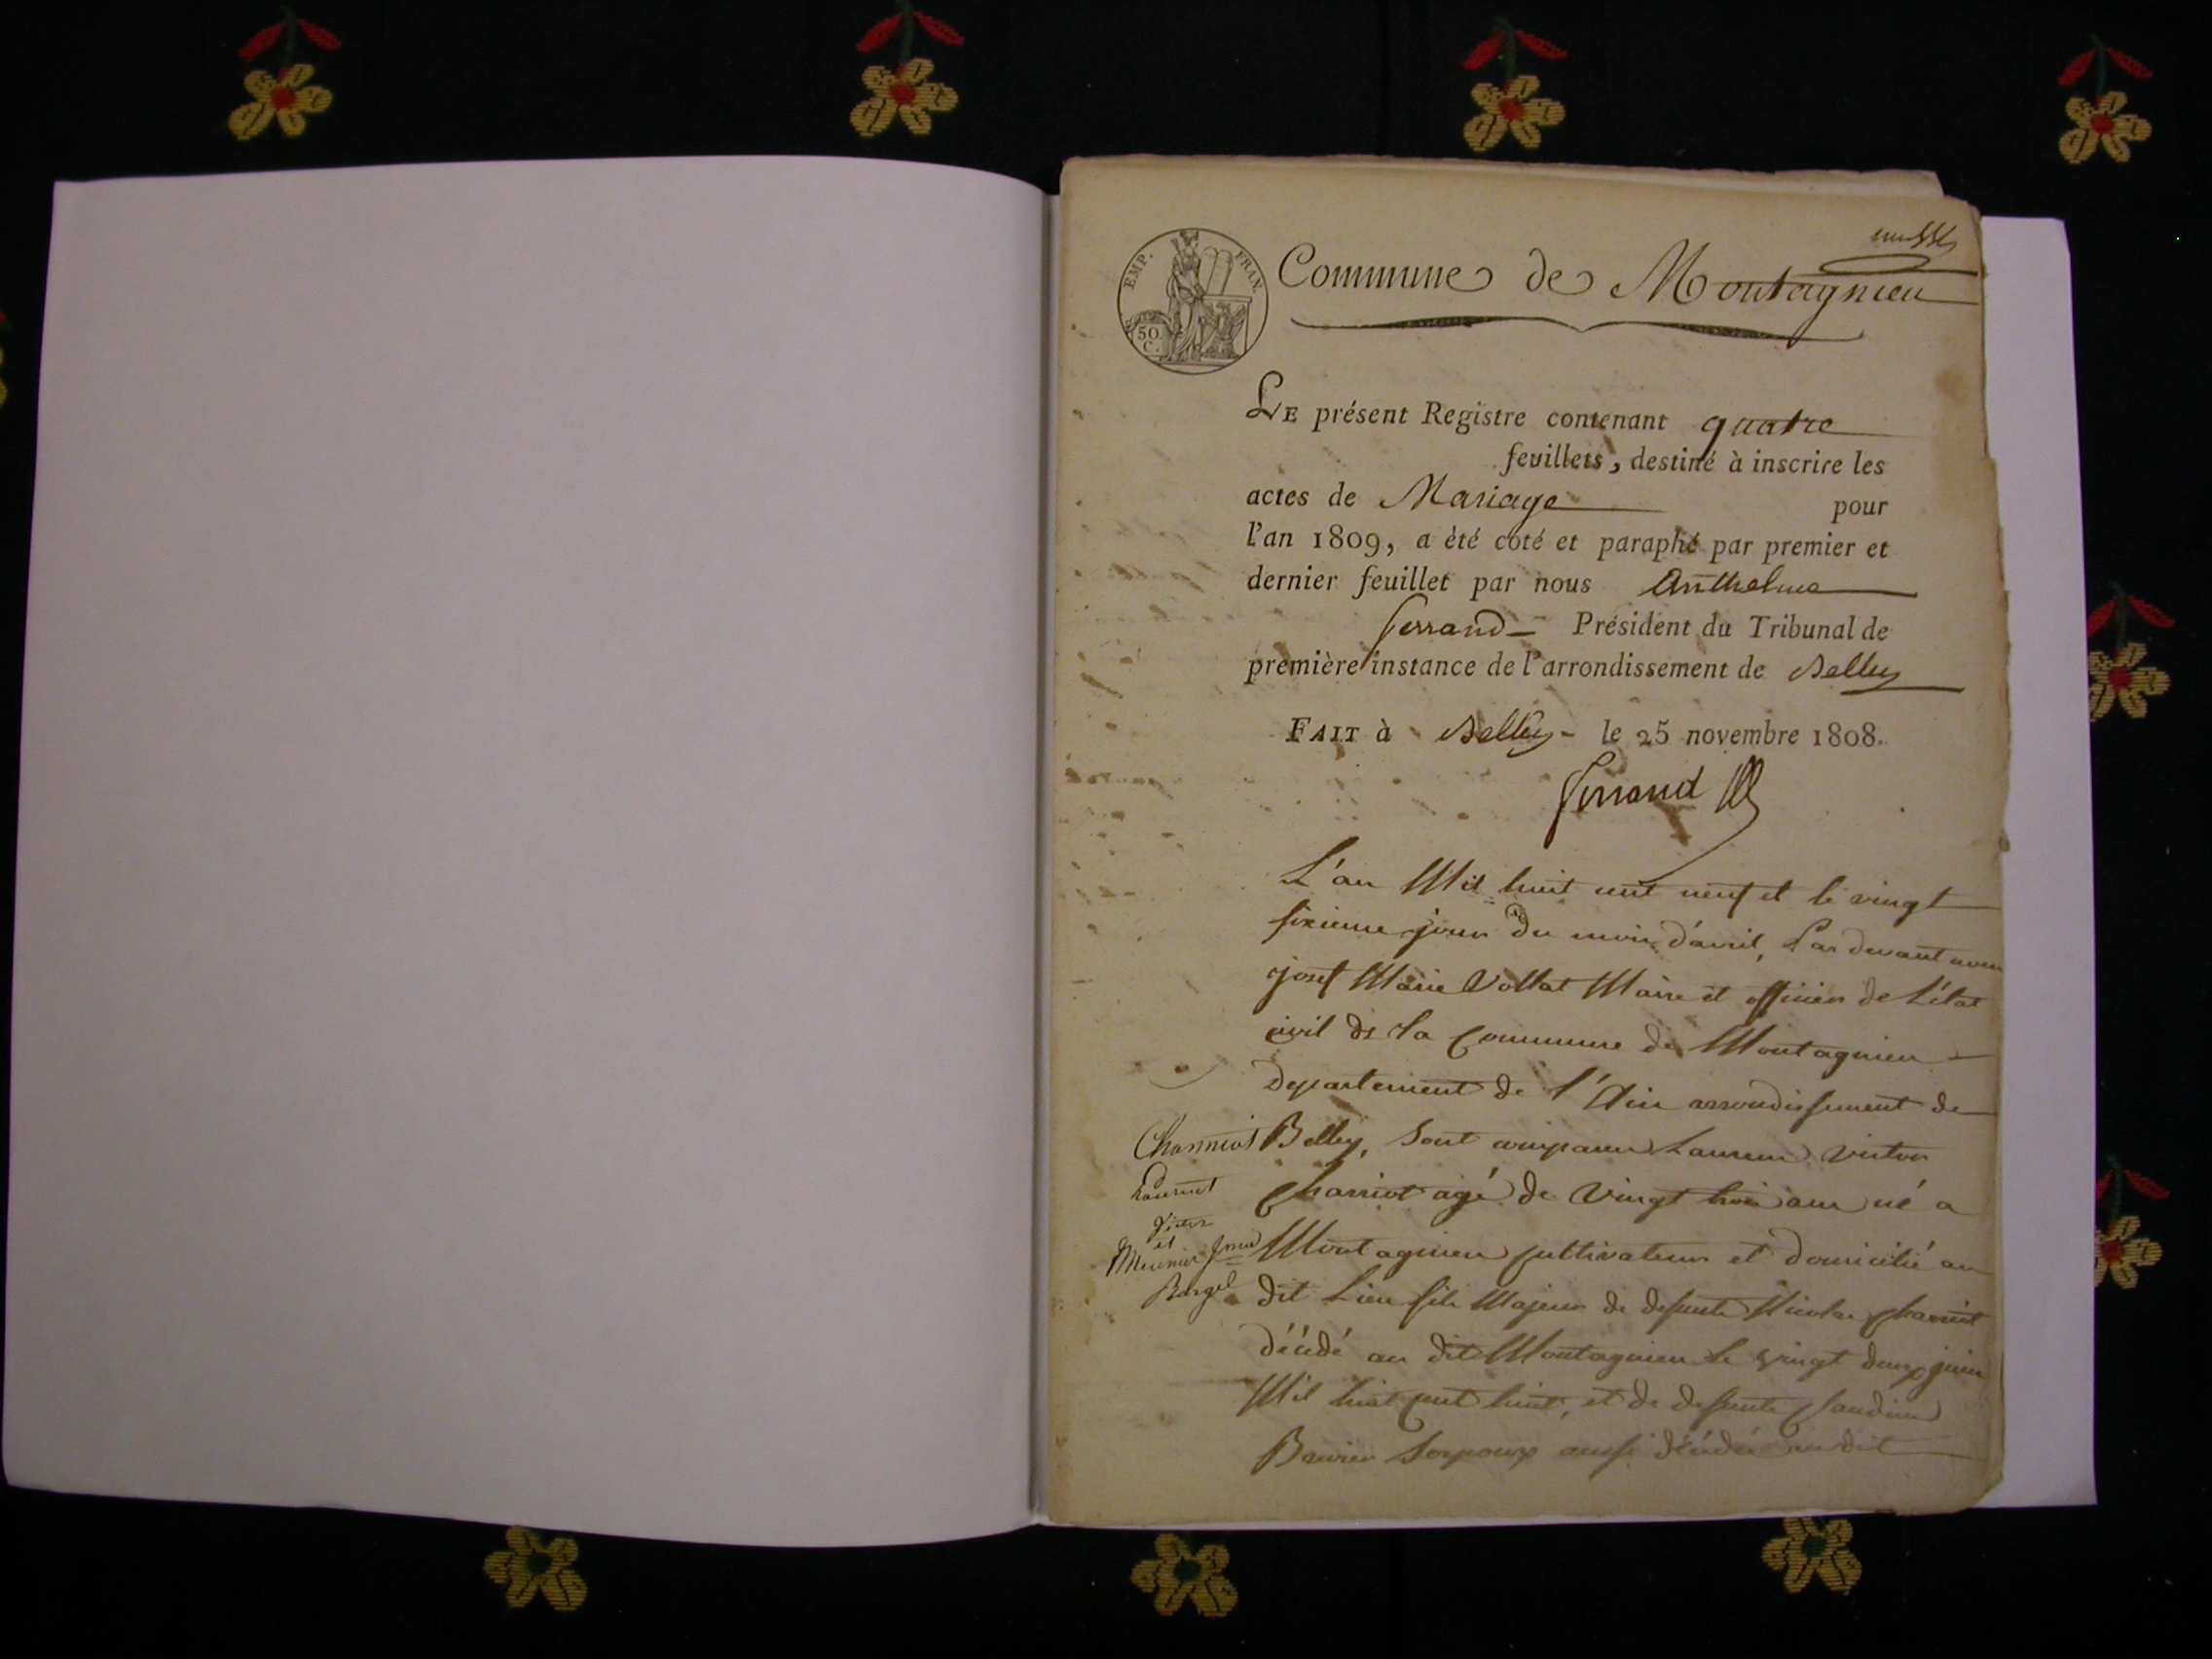 EMP. FRAN.
50
C.
Commune de Montagnieu
LE présent Registre contenant quatre
feuillets, destiné à inscrire les
actes de Mariage pour
l'an 1809, a été coté et paraphé par premier et
dernier feuillet par nous Anthelme
ferrand Président du Tribunal de
première instance de l'arrondissement de Belley
FAIT à Belley le 25 novembre 1808.
ferrand
L'an Mil huit cent neuf et le vingt
sixieme jour du mois d'avril, Par devant nous
josef Marie Vollat Maire et officier de L'état
civil de la Commune de Montagnieu
Departement de l'Ain arrondissement de
Belley, Sont comparu Laurent victor
Charriot agé de vingt trois ans né a
Montagnieu Cultivateur et domicilié au
dit Lieu fils Majeur de defunt Nicolas Charriot
décédé au dit Montagnieu le vingt deux juin
Mil huit cent huit, et de defunte Claudine
aussi décédée au dit
Charriot
Laurent
Victor
et
Meunier